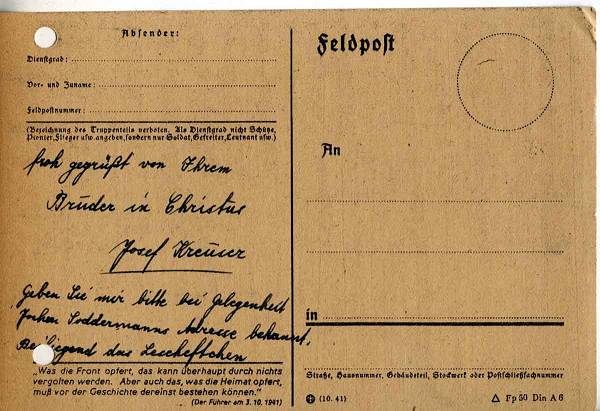 Absender:
Dienstgrad:
Vor- und Zuname:
Feldpostnummer:
(Bezeichnung des Truppenteils verboten. Als Dienstgrad nicht Schütze,
Pionier, Flieger usw. angeben, sondern nur Soldat, Gefreiter, Leutnant usw.)
froh gegrüßt von Ihrem
Bruder in Christus
Josef Kreuser
Geben Sie mir bitte bei Gelegenheit
Jochen Soddermanns Adresse bekannt.
Beiliegend das Leseheftchen
„Was die Front opfert, das kann überhaupt durch nichts
vergolten werden. Aber auch das, was die Heimat opfert,
muß vor der Geschichte dereinst bestehen können."
(Der Führer am 3. 10. 1941)
Feldpost
An
in
Straße, Hausnummer, Gebäudeteil, Stockwerk oder Postschließfachnummer
(10. 41)
Fp 50 Din A 6